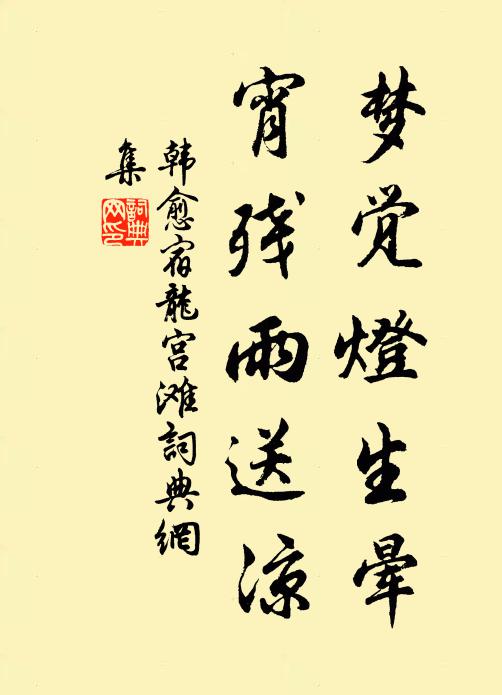 梦觉燈生暈
宵残雨送凉
韩愈宿龍宫滩詞典網
集
詞典
网印